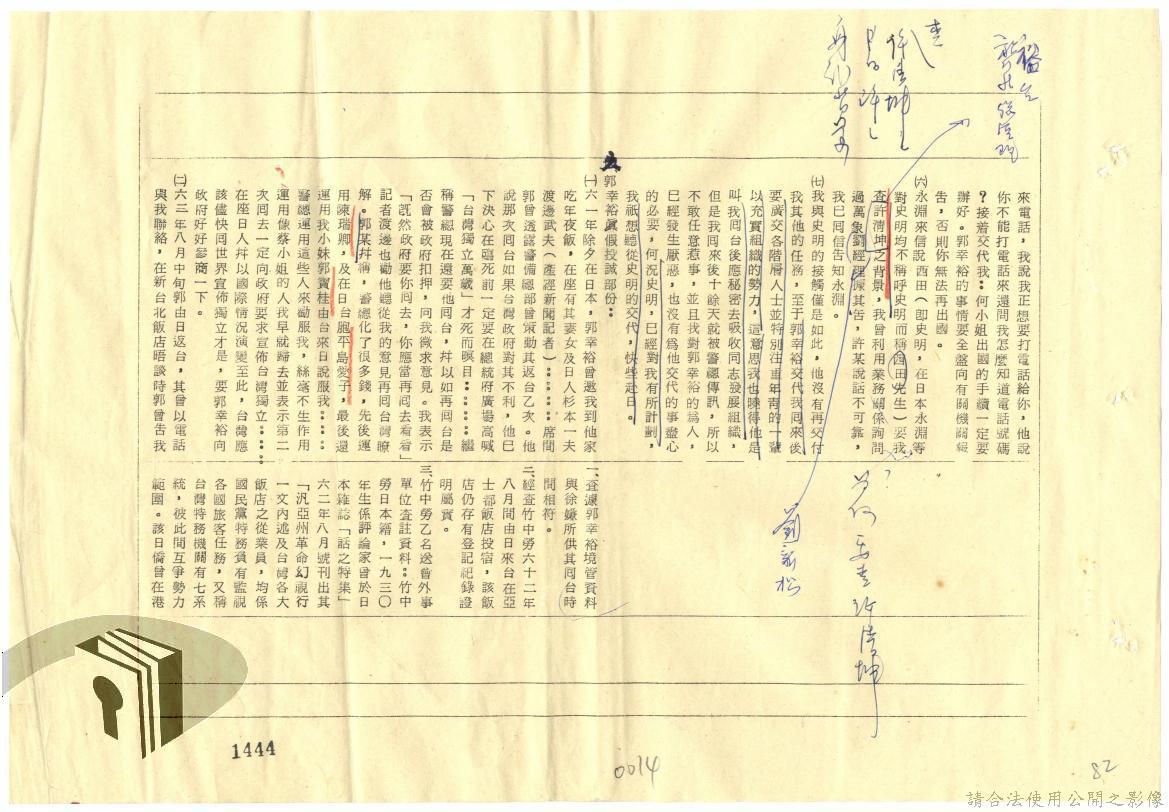 來電話,我說我正想要打電話給你,他說
你不能打電話來還問我怎麼知道電話號碼
?接着交代我:何小姐出國的手續一定要
辦好。郭幸裕的事情要全盤向有關機關報
告,否則你無法再出國。
㈥永淵來信說西田(即史明,在日本永淵等
對史明均不稱呼史明而稱西田先生)要我
查許清坤之背景,我曾利用業務關係詢問
過萬象劉經理據其告,許某說話不可靠,
我已囘信告知永淵。
㈦我與史明的接觸僅是如此,他沒有再交付
我其他的任務,至于郭幸裕交代我囘來後
要廣交各階層人士並特別注重年青的一輩
以充實組織的勢力,這意思我也曉得他是
叫我囘台後應秘密去吸收同志發展組織,
但是我囘來後十餘天就被警總傳訊,所以
不敢任意惹事,並且我對郭幸裕的為人,
已經發生厭惡,也沒有為他交代的事盡心
的必要,何況史明,已經對我有所計劃,
我祇想聽從史明的交代,快些赴日。
五、郭幸裕眞假投誠部份:
㈠六一年除夕在日本,郭幸裕曾邀我到他家
吃年夜飯,在座有其妻女及日人杉本一夫
渡邊武夫(產經新聞記者)……席間
郭曾透露警備總部曾策動其返台乙次。他
說那次囘台如果台灣政府對其不利,他已
下決心在臨死前一定要在總統府廣場高喊
「台灣獨立萬歲」才死而瞑目……繼
稱警總現在還要他囘台,幷以如再囘台是
否會被政府扣押,向我徵求意見。我表示
「旣然政府要你囘去,你應當再囘去看看」
記者渡邊也勸他聽從我的意見再囘台灣瞭
解。郭某幷稱,警總化了很多錢,先後運
用陳瑞卿,及在日台胞平島愛子,最後還
運用我小妹郭寶桂由台來日說服我……
警總運用這些人來勸服我,絲毫不生作用
運用像蔡小姐的人我早就歸去並表示第二
次囘去一定向政府要求宣佈台灣獨立……
在座日人幷以國際情況演變至此,台灣應
該儘快囘世界宣佈獨立才是,要郭幸裕向
政府好好參商一下。
㈡六三年八月中旬郭由日返台,其曾以電話
與我聯絡,在新台北飯店晤談時郭曾告我
一、查渡郭幸裕境管資料
與徐嫌所供其囘台時
間相符。
二、經查竹中勞六十二年
八月間由日來台在亞
士都飯店投宿,該飯
店仍存有登記紀錄證
明屬實。
三、竹中勞乙名送曾外事
單位查註資料:竹中
勞日本籍,一九三〇
年生係評論家曾於日
本雜誌「話之特集」
六二年八月號刊出其
「汎亞州革命幻視行
一文內述及台灣各大
飯店之從業員,均係
國民黨特務員有監視
各國旅客任務,又稱
台灣特務機關有七系
統,彼此間互爭勢力
範圍。該日僑曾在港
查
許清坤
劉新松
為何要查許清坤
?
1444
0014
82
請合法使用公開之影像